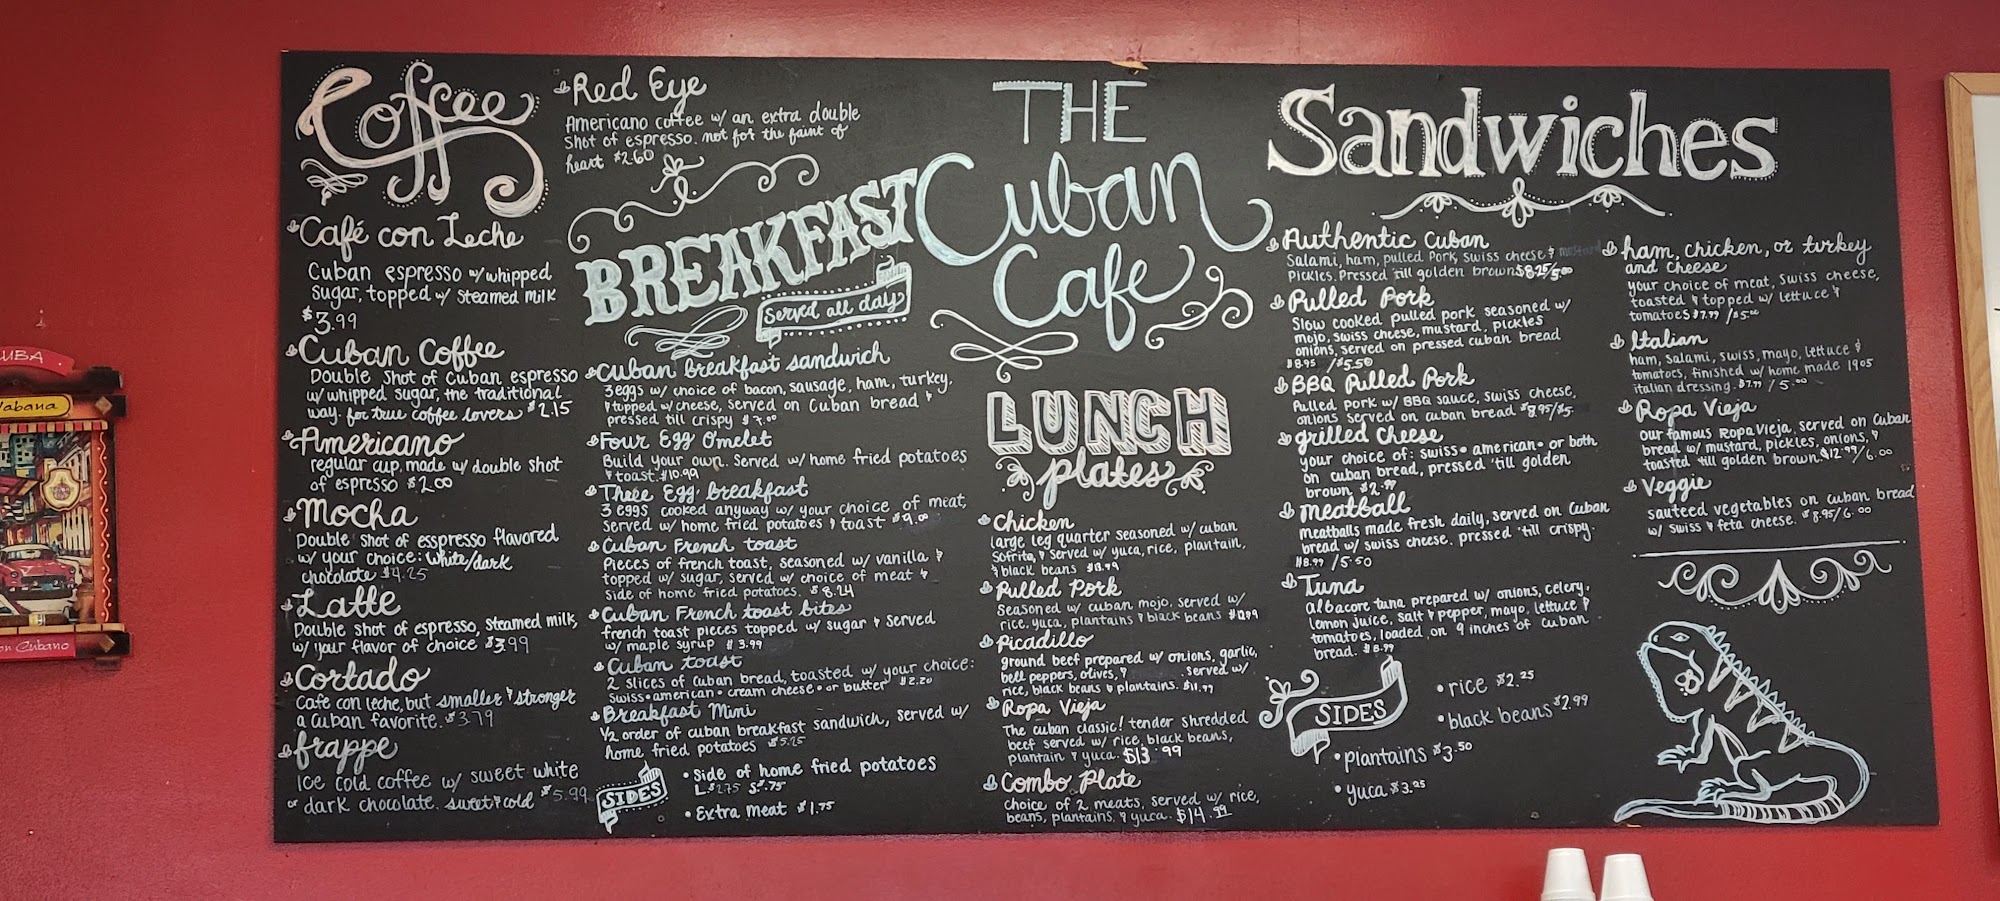 Coffee
Café con Leche
Cuban espresso w/ whipped
sugar, topped w/ steamed milk
$3.99
Cuban Coffee
Double shot of Cuban espresso
w/ whipped sugar, the traditional
way. for true coffee lovers $2.15
Americano
regular cup, made w/ double shot
of espresso $2.00
Mocha
Double shot of esspresso flavored
w/ your choice: white/dark
chocolate $4.25
Latte
Double shot of espresso, steamed milk,
w/ your flavor of choice $3.99
Cortado
Cafe con leche, but smaller & stronger
a Cuban favorite. $3.79
frappe
Ice cold coffee w/ sweet white
or dark chocolate. sweet & cold $5.99
Red Eye
Americano coffee w/ an extra double
shot of espresso. not for the faint of
heart $2.60
BREAKFAST
Served all day
Cuban breakfast sandwich
3 eggs w/ choice of bacon, sausage, ham, turkey,
& topped w/ cheese, served on Cuban bread &
pressed till crispy $7.00
Four Egg Omelet
Build your own. Served w/ home fried potatoes
& toast. $10.99
Three Egg breakfast
3 eggs cooked anyway w/ your choice of meat,
served w/ home fried potatoes & toast $9.00
Cuban French toast
Pieces of french toast, seasoned w/ vanilla &
topped w/ sugar, served w/ choice of meat &
side of home fried potatoes. $8.24
Cuban French toast bites
french toast pieces topped w/ sugar & served
w/ maple syrup $3.99
Cuban toast
2 slices of Cuban bread, toasted w/ your choice:
swiss • american • cream cheese • or butter $2.20
Breakfast Mini
1/2 order of cuban breakfast sandwich, served w/
home fried potatoes $5.25
SIDES
• Side of home fried potatoes
L $2.75 S $.75
• Extra meat $1.75
THE
Cuban
Cafe
LUNCH
plates
Chicken
large leg quarter seasoned w/ cuban
sofrito, & served w/ yuca, rice, plantain,
& black beans $13.99
Pulled Pork
Seasoned w/ cuban mojo, served w/
rice, yuca, plantains & black beans $12.99
Picadillo
ground beef prepared w/ onions, garlic,
bell peppers, olives, & served w/
rice, black beans & plantains. $11.99
Ropa Vieja
The cuban classic! tender shredded
beef served w/ rice, black beans,
plantain & yuca. $13.99
Combo Plate
choice of 2 meats, served w/ rice,
beans, plantains, & yuca. $14.99
Sandwiches
Authentic Cuban
Salami, ham, pulled pork, swiss cheese & mustard
Pickles. Pressed 'till golden brown $8.25/5.00
Pulled Pork
Slow cooked pulled pork seasoned w/
mojo, swiss cheese, mustard, pickles
onions, served on pressed cuban bread
$8.95 /$5.50
BBQ Pulled Pork
Pulled Pork w/ BBQ sauce, swiss cheese,
onions served on cuban bread $8.95/$5.
grilled Cheese
your choice of: swiss • american • or both
on cuban bread, pressed 'till golden
brown $2.99
Meatball
meatballs made fresh daily, served on Cuban
bread w/ swiss cheese. pressed 'till crispy.
$8.99 /5.50
Tuna
albacore tuna prepared w/ onions, celery,
lemon juice, salt & pepper, mayo, lettuce &
tomatoes, loaded on 9 inches of cuban
bread. $8.99
SIDES
• rice $2.25
• black beans $2.99
• plantains $3.50
• yuca $3.25
ham, chicken, or turkey
and cheese
your choice of meat, swiss cheese,
toasted & topped w/ lettuce &
tomatoes $7.99 /5.00
Italian
ham, salami, swiss, mayo, lettuce &
tomatoes, finished w/ home made 1905
italian dressing. $7.99 / 5.00
Ropa Vieja
our famous Ropa Vieja, served on Cuban
bread w/ mustard, pickles, onions, &
toasted 'till golden brown. $12.99/6.00
Veggie
sauteed vegetables on cuban bread
w/ swiss & feta cheese. $8.95/6.00
UBA
Habana
on Cubano